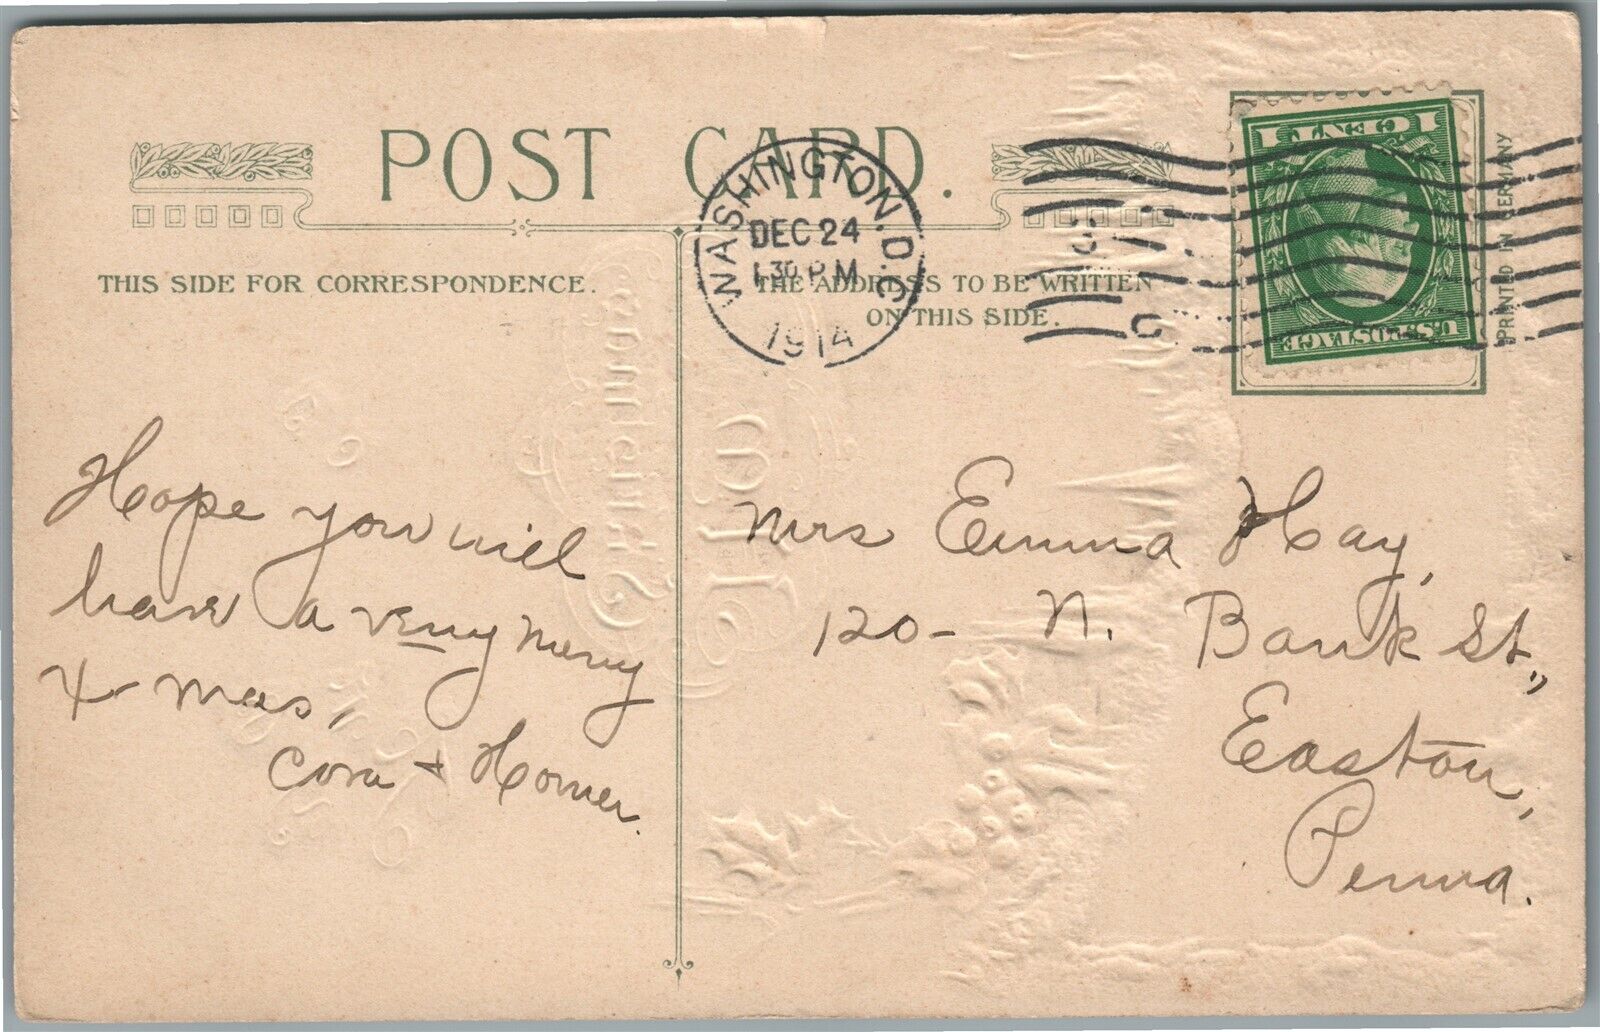 POST CARD.
THIS SIDE FOR CORRESPONDENCE.
THE ADDRESS TO BE WRITTEN
ON THIS SIDE.
WASHINGTON, D.C.
DEC 24
1 30 P.M.
1914
1 CENT 1
U.S. POSTAGE
PRINTED IN GERMANY
Hope you will
have a very merry
X-mas,
Cora + Homer.
Mrs Emma Hay,
120- N. Bank St.,
Easton,
Penna.